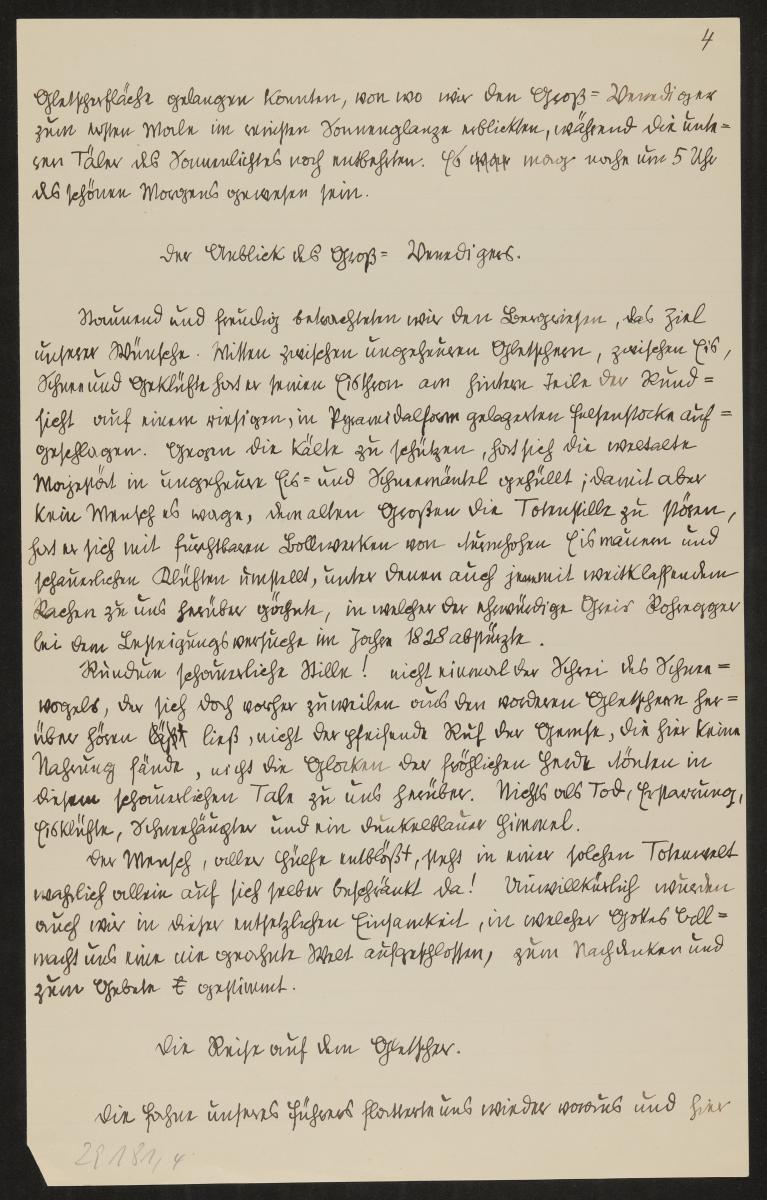 4
Gletscherfläche gelangen konnten, von wo wir den Groß= Venediger
zum ersten Male im reinsten Sonnenglanze erblickten, während die unte=
ren Täler des Sonnenlichtes noch entbehrten. Es mag nahe um 5 Uhr
des schönen Morgens gewesen sein.
Der Anblick des Groß= Venedigers.
Staunend und freudig betrachteten wir den Bergriesen, das Ziel
unserer Wünsche. Mitten zwischen ungeheuren Gletschern, zwischen Eis,
Schnee und Geklüfte hat er seinen Eisthron am hintern Teile der Rund=
sicht auf einem riesigen, in Pyramidalform gelagerten Felsenstocke auf=
geschlagen. Gegen die Kälte zu schützen, hat sich die weltalte
Majestät in ungeheure Eis= und Schneemäntel gehüllt; damit aber
kein Mensch es wage, dem alten Großen die Totenstille zu stören,
hat er sich mit furchtbaren Bollwerken von turmhohen Eismauern und
schauerlichen Klüften umstellt, unter denen auch jene mit weitklaffendem
Rachen zu uns herüber gähnte, in welcher der ehrwürdige Greis Rohregger
bei dem Besteigungsversuche im Jahre 1828 abstürzte.
Rundum schauerliche Stille! nicht einmal der Schrei des Schnee=
vogels, der sich doch vorher zuweilen aus den vorderen Gletschern her=
über hören ließ, nicht der pfeifende Ruf der Gemse, die hier keine
Nahrung fände, nicht die Glocken der fröhlichen Herde tönten in
diesem schauerlichen Tale zu uns herüber. Nichts als Tod, Erstarrung,
Eisklüfte, Schneehäupter und ein dunkelblauer Himmel.
Der Mensch, aller Hülfe entblößt, steht in einer solchen Totenwelt
wahrlich allein auf sich selber beschränkt da! Unwillkürlich wurden
auch wir in dieser entsetzlichen Einsamkeit, in welcher Gottes All=
macht uns eine nie geahnte Welt aufgeschlossen, zum Nachdenken und
zum Gebete gestimmt.
Die Reise auf dem Gletscher.
Die Fahne unseres Führers flatterte uns wieder voraus und hier
29181,4